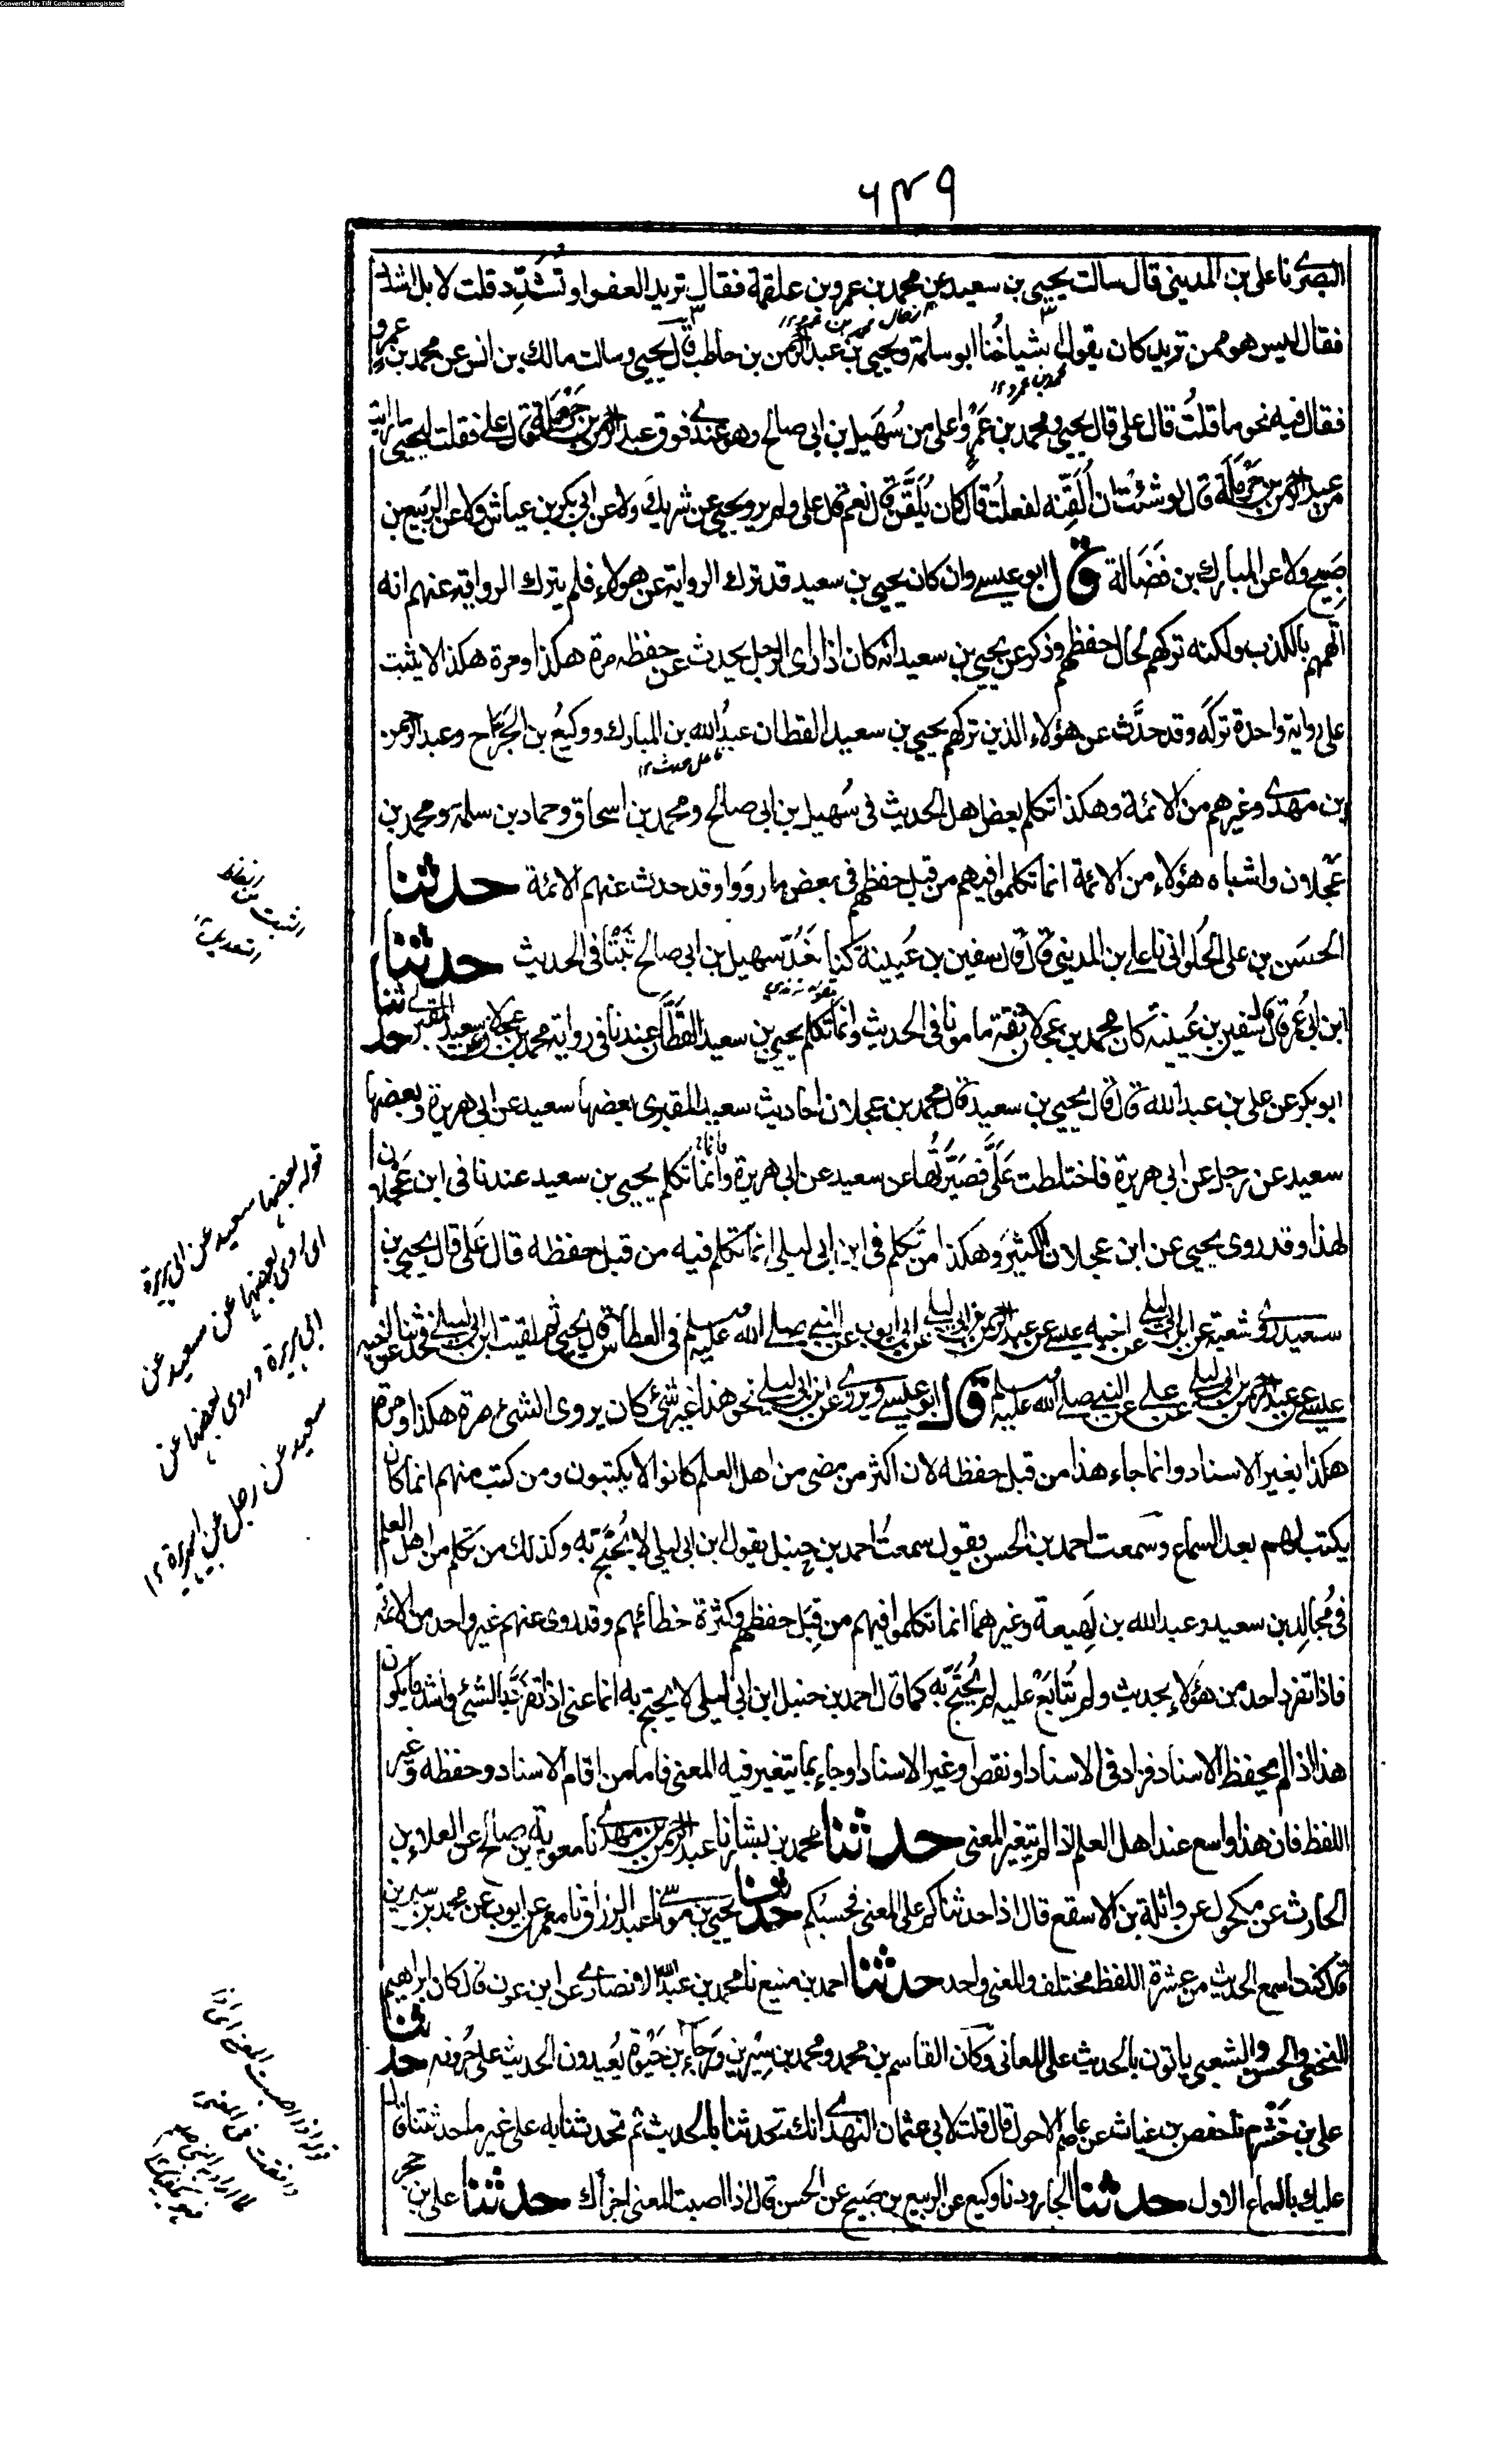 Converted by Tiff Combine - unregistered
٦٣٩
البصرى نا على بن المدينى قال سالت يحيى بن سعيد عن محمد بن عمرو بن علقمة فقال تريد العفو او تشدّد قلت لا بل اشدد
فقال ليس هو ممن تريد كان يقول اشياخنا ابو سلمة ويحيى بن عبد الرحمن بن حاطب قال يحيى وسالت مالك بن انس عن محمد بن عمرو
فقال فيه نحو ما قلتُ قال على قال يحيى ومحمد بن عَمْرو اعلى من سُهَيل بن ابى صالح وهو عندى فوق عبد الرحمن بن حَرْمَلة قال على فقلت ليحيى ما رايت
من عبد الرحمن بن حَرْمَلَة قال لو شئتُ ان اُلَقِّنه لفعلتُ قال كان يُلَقَّن قال نعم قال على ولم يرو يحيى عن شريك ولا عن ابى بكر بن عياش ولا عن الربيع بن
صَبِيح ولا عن المبارك بن فَضَالة قال ابو عيسى وان كان يحيى بن سعيد قد ترك الرواية عن هولاء فلم يترك الرواية عنهم انه
اتهمهم بالكذب ولكنه تركهم لحال حفظهم وذكر عن يحيى بن سعيد انه كان اذا راى الرجل يحدث عن حفظه مرة هكذا ومرة هكذا لا يثبت
على رواية واحدة تركه وقد حدَّث عن هؤلاء الذين تركهم يحيى بن سعيد القطان عبدُ الله بن المبارك ووكيعُ بن الجَرَّاح وعبد الرحمن
بن مهدى وغيرهم من الائمة وهكذا تكلم بعض اهل الحديث فى سُهيل بن ابى صالح ومحمد بن اسحاق وحماد بن سلمة ومحمد بن
عَجْلان واشباه هؤلاء من الائمة انما تكلموا فيهم من قبل حفظهم فى بعض ما رووا وقد حدث عنهم الائمة حدثنا
الحسَن بن على الحُلوانى نا على بن المدينى قال قال سفين بن عُيينة كنا نَعُدّ سهيل بن ابى صالح ثَبْتًا فى الحديث حدثنا
ابن ابى عُمر قال قال سفين بن عُيينة كان محمد بن عجلان ثقة مامونا فى الحديث وانما تكلم يحيى بن سعيد القطَّان عندنا فى رواية محمد بن عجلان عن سعيد المقبرى حدثنا
ابو بكر عن على بن عبد الله قال قال يحيى بن سعيد قال محمد بن عجلان احاديث سعيد المقبرى بعضها سعيد عن ابى هريرة وبعضها
سعيد عن رجل عن ابى هريرة فاختلطت عَلَىَّ فصَيَّرتُها عن سعيد عن ابى هريرة وانما تكلم يحيى بن سعيد عندنا فى ابن عَجْلان
لهذا وقد روى يحيى عن ابن عجلان الكثيرَ وهكذا من تكلم فى ابن ابى ليلى انما تكلم فيه من قبل حفظه قال على قال يحيى بن
سعيد روى شعبة عن ابن ابى ليلى عن اخيه عيسى عن عبد الرحمن بن ابى ليلى عن ابى ايوب عن النبى صلى الله عليه وسلم فى العطاس قال يحيى ثم لقيت ابن ابى ليلى فحدثنا عن اخيه
عيسى عن عبد الرحمن بن ابى ليلى عن على عن النبى صلى الله عليه وسلم قال ابو عيسى ويروى عن ابن ابى ليلى نحو هذا غير شئ كان يروى الشئ مرة هكذا ومرة
هكذا بغير الاسناد وانما جاء هذا من قبل حفظه لان اكثر من مضى من اهل العلم كانوا لا يكتبون ومن كتب منهم انما كان
يكتب لهم بعد السماع وسمعت احمد بن الحسن يقول سمعتُ احمد بن حنبل يقول ابن ابى ليلى لا يُحْتَج به وكذلك من تكلم من اهل العلم
فى مُجالِد بن سعيد وعبد الله بن لَهِيعة وغيرهما انما تكلموا فيهم من قِبَل حفظهم وكثرة خطائهم وقد روى عنهم غير واحد من الائمة
فاذا تفرد احد من هؤلاء بحديث ولم يُتابَعْ عليه لم يُحْتَجّ به كما قال احمد بن حنبل ابن ابى ليلى لا يحتج به انما عنى اذا تفرَّد بالشئ واشد ما يكون
هذا اذا لم يحفظ الاسناد فزاد فى الاسناد او نقص او غير الاسناد او جاء بما يتغير فيه المعنى فاما من اقام الاسناد وحفظه وغير
اللفظ فان هذا واسع عند اهل العلم اذا لم يتغير المعنى حدثنا محمد بن بشار نا عبد الرحمن بن مهدى نا معوية بن صالح عن العلاء بن
الحارث عن مكحول عن واثلة بن الاسقع قال اذا حدثناكم على المعنى فحسبُكم حدثنا يحيى بن موسى نا عبد الرزاق نا معمر عن ايوب عن محمد بن سيرين
قال كنت اسمع الحديث من عشرة اللفظ مختلف والمعنى واحد حدثنا احمد بن منيع نا محمد بن عبد الله الانصارى عن ابن عون قال كان ابراهيم
النخعى والحسن والشعبى ياتون بالحديث على المعانى وكان القاسم بن محمد ومحمد بن سِيْرين ورَجَاء بن حَيْوة يُعيدون الحديث على حُروفه حدثنا
على بن خَشْرم نا حفص بن غياث عن عاصم الاحول قال قلت لابى عثمان النهدى انك تحدثنا بالحديث ثم تحدثنا به على غير ما حدثتنا قال
عليك بالسماع الاول حدثنا الجارود نا وكيع عن الربيع بن صَبِيح عن الحسن قال اذا اصبت المعنى اجزأك حدثنا على بن حجر
قوله بعضها سعيد عن ابى هريرة
اى اروى بعضها عن سعيد عن
ابى هريرة وروى بعضها عن
سعيد عن رجل عن ابى هريرة ١٢